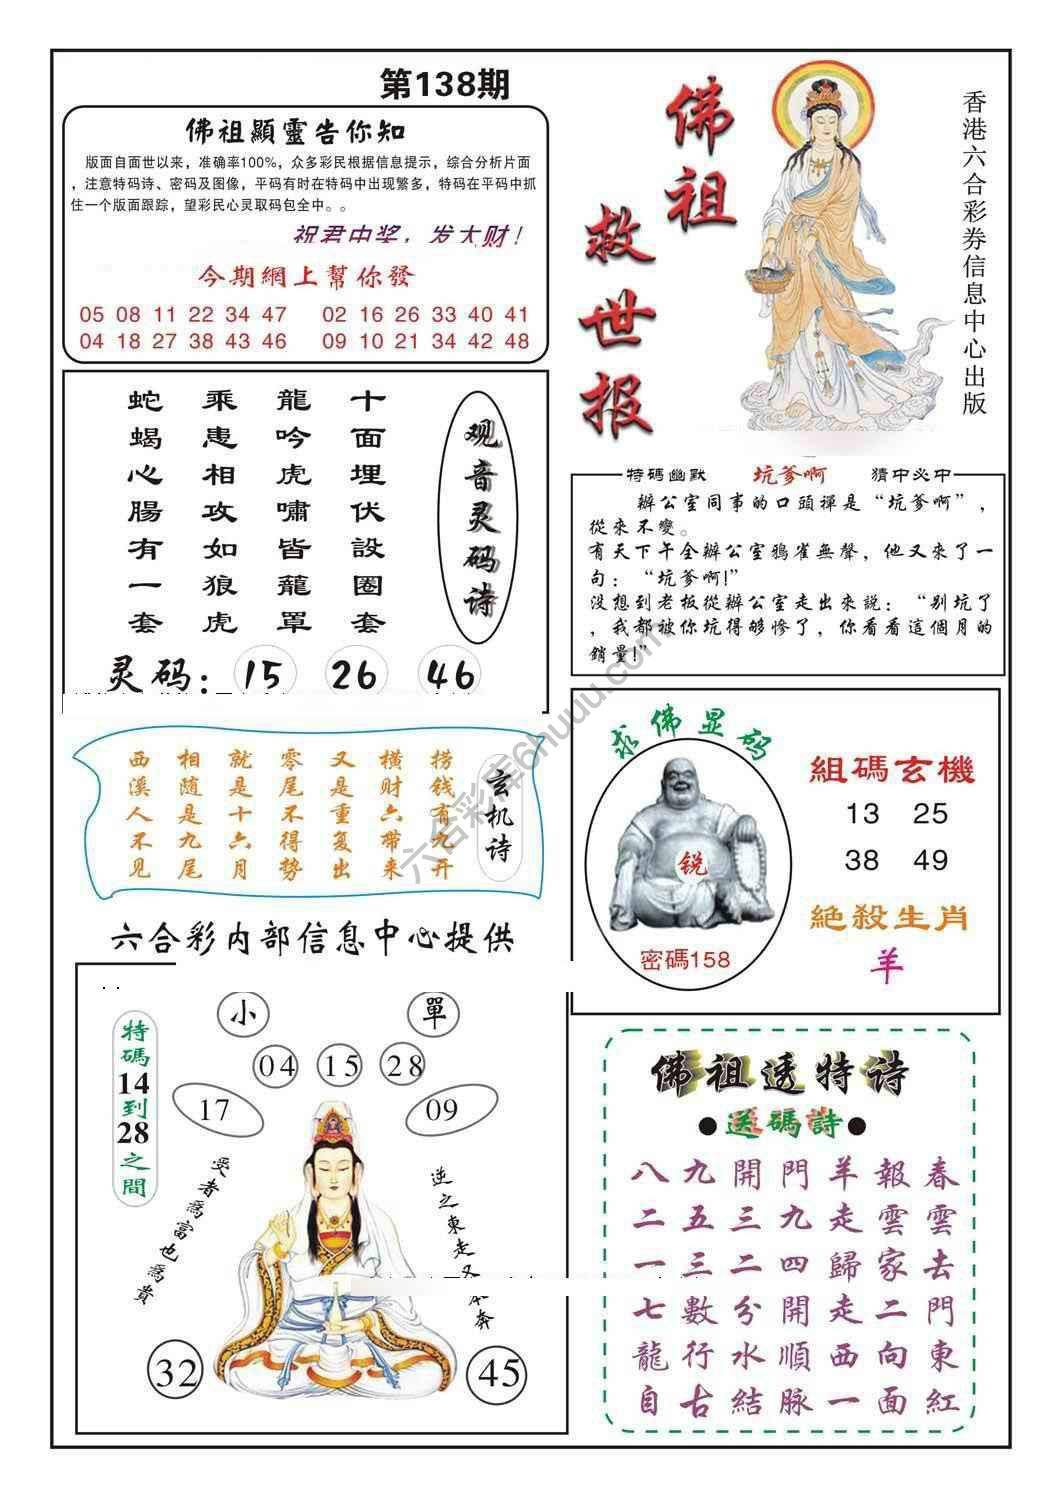 第138期
佛祖顯靈告你知
版面自面世以来，准确率100%，众多彩民根据信息提示，综合分析片面
，注意特码诗、密码及图像，平码有时在特码中出现繁多，特码在平码中抓
住一个版面跟踪，望彩民心灵取码包全中。。
祝君中奖，发大财！
今期網上幫你發
05 08 11 22 34 47 02 16 26 33 40 41
04 18 27 38 43 46 09 10 21 34 42 48
佛祖
救世报
香港六合彩券信息中心出版
观音灵码诗
十面埋伏設圈套
龍吟虎嘯皆蘢罩
乘患相攻如狼虎
蛇蝎心腸有一套
灵码：15 26 46
特碼幽默 坑爹啊 猜中必中
辦公室同事的口頭禪是“坑爹啊”，
從來不變。
有天下午全辦公室鴉雀無聲，他又來了一
句：“坑爹啊!”
没想到老板從辦公室走出來説：“别坑了
，我都被你坑得够慘了，你看看這個月的
銷量!”
玄机诗
捞钱有九开
横财六带来
又是重复出
零尾不得势
就是十六月
相随是九尾
西溪人不见
求佛显码
锐
密碼158
組碼玄機
13 25
38 49
絶殺生肖
羊
六合彩内部信息中心提供
特碼14到28之間
小 單
04 15 28
17 09
受者爲富也爲貴
逆之東走又
奔
32 45
佛祖透特诗
●送碼詩●
八九開門羊報春
二五三九走雲雲
一三二四歸家去
七數分開走二門
龍行水順西向東
自古結脉一面紅
六合彩库6huuu.com